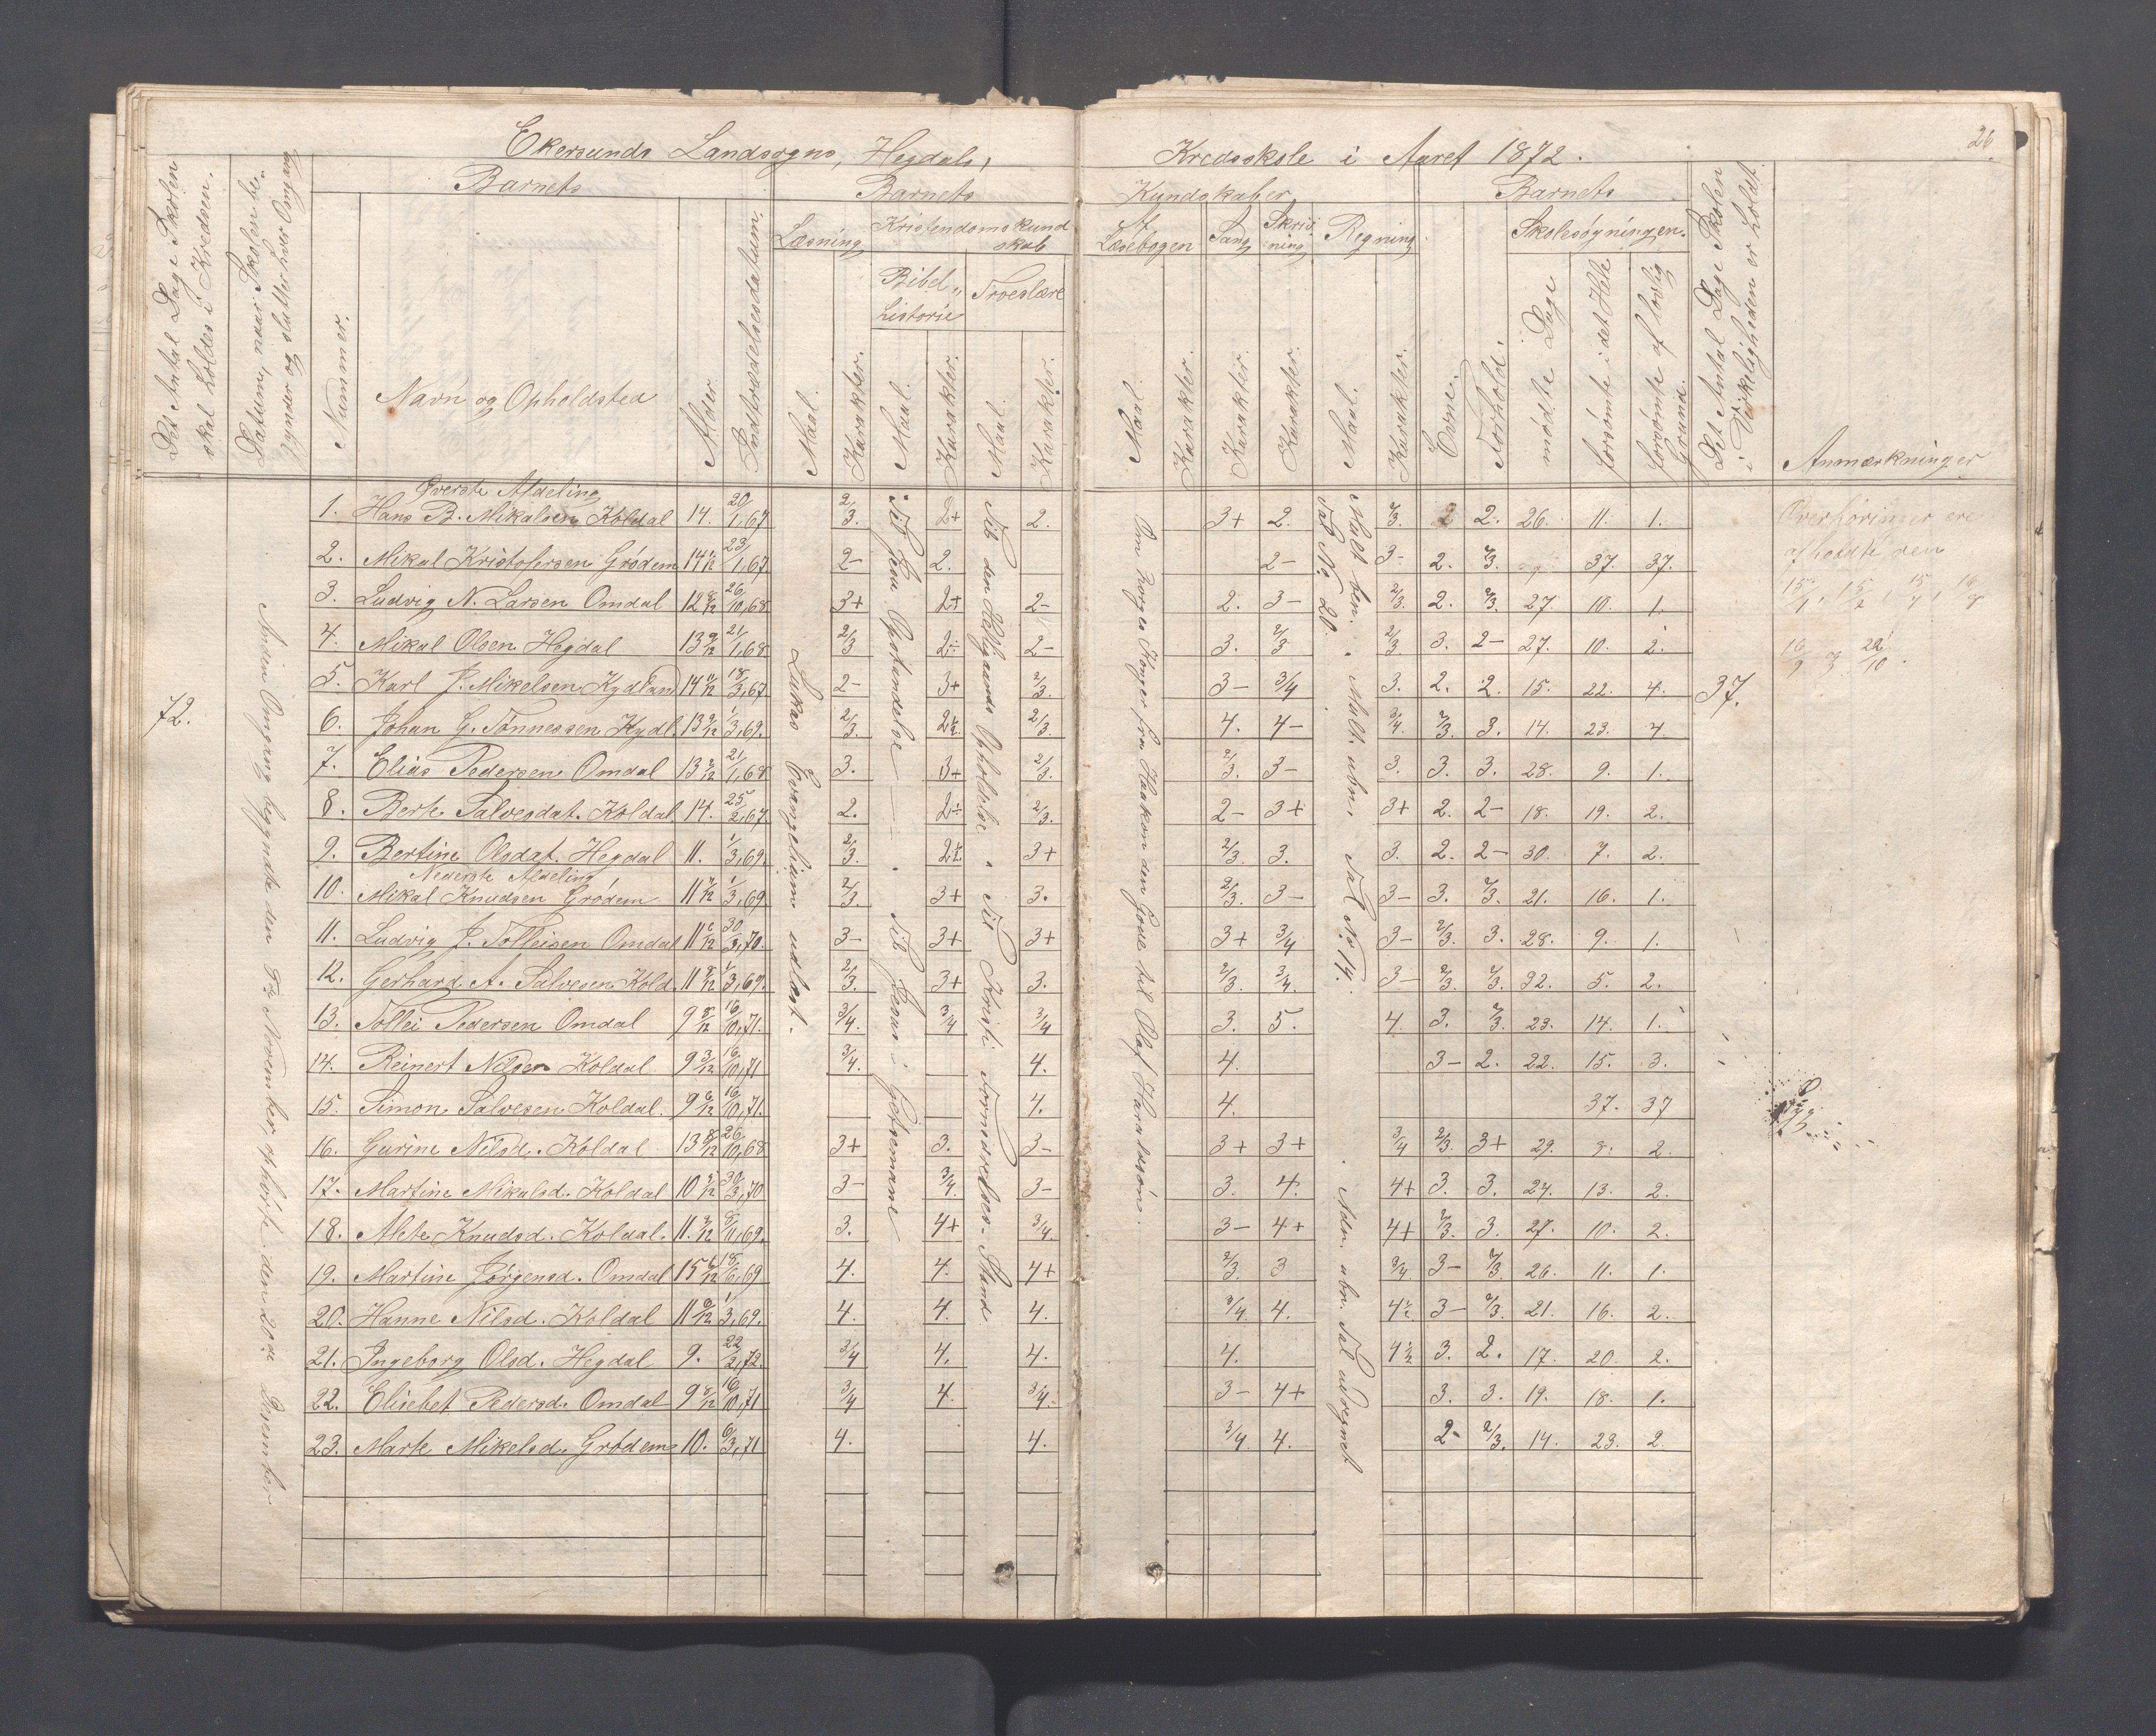 26
Ekersunds Landsogns, Hegdals, Kredsskole i Aaret 1872.
Det Antal Dage Skolen skal holdes i Kredsen.
Datum, naar Skolen begynder og slutter hver Omgang
Barnets
Nummer.
Navn og Opholdsted
Alder.
Indtrædelsesdatum.
Barnets Kundskaber
Læsning
Maal.
Karakter.
Kristendomskundskab
Bibelhistorie
Maal.
Karakter.
Troeslære
Maal.
Karakter.
Af Læsebogen
Maal.
Karakter.
Sang
Karakter.
Skrivning
Karakter.
Regning
Maal.
Karakter.
Barnets
Evne.
Forhold.
Skolesøgningen.
mødte Dage
forsømte i det Hele
forsømte af lovlig Grund.
Det Antal Dage Skolen i Virkeligheden er holdt.
Anmærkninger
72.
Anden Omgang begyndte den November, ophørte den 20de Desember
Lukas Evangelium udlæst.
Til Jesu Opstandelse — Til Jesus i Getsemane
Til den Opholdelse. Til Kristi Fornedrelses-Stand
Om Norges Konger fra Haakon den Gode til Olaf Haraldsøn.
Tal No 20.
Mult. ubn. Tal No 14.
Adn. ubn. Tal udregnet
37.
Overhøringer ere
afholdte den
15/1, 15/2, 15/4, 16/
16/9 og 22/10.
Øverste Afdeling
1. Hans B. Mikalsen Koldal 14. 20/1,67 2/3. 2+ 2. 3+ 2. 2/3. 2 2. 26. 11. 1.
2. Mikal Kristofersen Grødem 14 1/12 23/1,67 2- 2. 2- 3- 2. 2/3. 37. 37.
3. Ludvig N. Larsen Omdal 12 8/12 26/10,68 3+ 2+ 2- 2. 3- 2/3. 2. 2/3. 27. 10. 1.
4. Mikal Olsen Hegdal 13 9/12 21/1,68. 2/3 2- 3. 2/3 2/3. 3. 2- 27. 10. 2.
5. Karl J. Mikelsen Kydland 14 11/12 18/3,67 2- 3+ 2/3. 3- 3/4 3. 2. 2. 15. 22. 4.
6. Johan G. Tønnessen Kydl. 13 9/12 1/3,69. 2/3. 2 1/2. 2/3. 4. 4- 3/4. 2/3. 3. 14. 23. 4.
7. Elias Pedersen Omdal 13 2/12 21/1,68 3. 3+ 2/3. 2/3. 3- 3. 3. 3. 28. 9. 1.
8. Berte Salvesdat. Koldal. 14. 25/2,67. 2. 2/3. 2- 3+ 3+ 2. 2- 18. 19. 2.
9. Bertine Olsdat. Hegdal 11. 1/3,69. 2/3. 2 1/2. 3+ 2/3. 3. 3. 2. 2- 30. 7. 2.
Nederste Afdeling
10. Mikal Knudsen Grødem 11 7/12 1/3,69. 2/3. 3+ 3. 2/3. 3- 3- 3. 2/3. 21. 16. 1.
11. Ludvig J. Tolleisen Omdal 11 6/12 30/3,70. 3- 3+ 3+ 3+ 3/4 3- 2/3. 3. 28. 9. 1.
12. Gerhard A. Salvesen Kold. 11 8/12 1/3,69. 2/3. 3+ 3. 2/3. 3/4. 3- 2/3. 2/3. 32. 5. 2.
13. Tollei Pedersen Omdal 9 8/12 16/10,71. 3/4. 3/4 3/4 3. 5. 4. 3. 2/3. 23. 14. 1.
14. Reinert Nilsen Koldal 9 3/12 16/10,71 3/4. 4. 4. 3- 2. 22. 15. 3.
15. Simon Salvesen Koldal. 9 6/12 16/10,71. 4. 4. 37. 37
16. Gurine Nilsd. Koldal 13 8/12 26/10,68 3+ 3. 3- 3+ 3+ 3/4 2/3. 3+ 29. 8. 2.
17. Martine Mikalsd. Koldal 10 5/12 30/3,70 3- 3/4. 3- 3. 4. 4+ 3. 3. 24. 13. 2.
18. Alete Knudsd. Koldal. 11. 2/12 8/11,69. 3. 4+ 3/4. 3- 4+ 4+ 2/3. 3. 27. 10. 2.
19. Martine Jørgensd. Omdal 15 6/12 18/6,69 4. 4. 4+ 2/3. 3 3/4 3- 2/3. 26. 11. 1.
20. Hanne Nilsd. Koldal 11 9/12 1/3,69. 4. 4. 4. 3/4 4. 4 1/2 3- 2/3. 21. 16. 2.
21. Ingeborg Olsd. Hegdal 9. 22/2,72. 3/4 4. 4. 4. 4 1/2 3. 2. 17. 20. 2.
22. Elisebet Pedersd. Omdal 9 8/12 16/10,71 3/4 4. 3/4. 3- 4+ 3. 3. 19. 18. 1.
23. Marte Mikelsd. Grødem 10. 6/3,71 4. 4. 3/4. 4. 2- 2/3. 14. 23. 2.